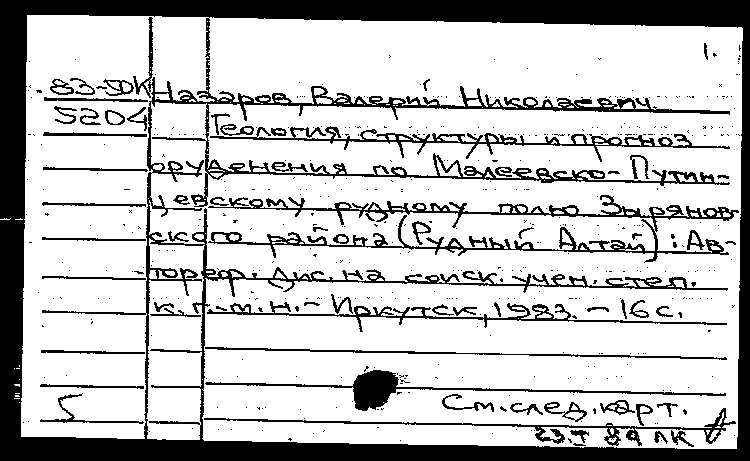 1.
83-50К Назаров, Валерий Николаевич.
5204 Геология, структуры и прогноз
оруденения по Малеевско-Путин-
цевскому рудному полю Зырянов-
ского района (Рудный Алтай) : Ав-
тореф. дис. на соиск. учен. степ.
к. г.-м. н. - Иркутск, 1983. - 16 с.
5
См. след. карт.
89 ЛК